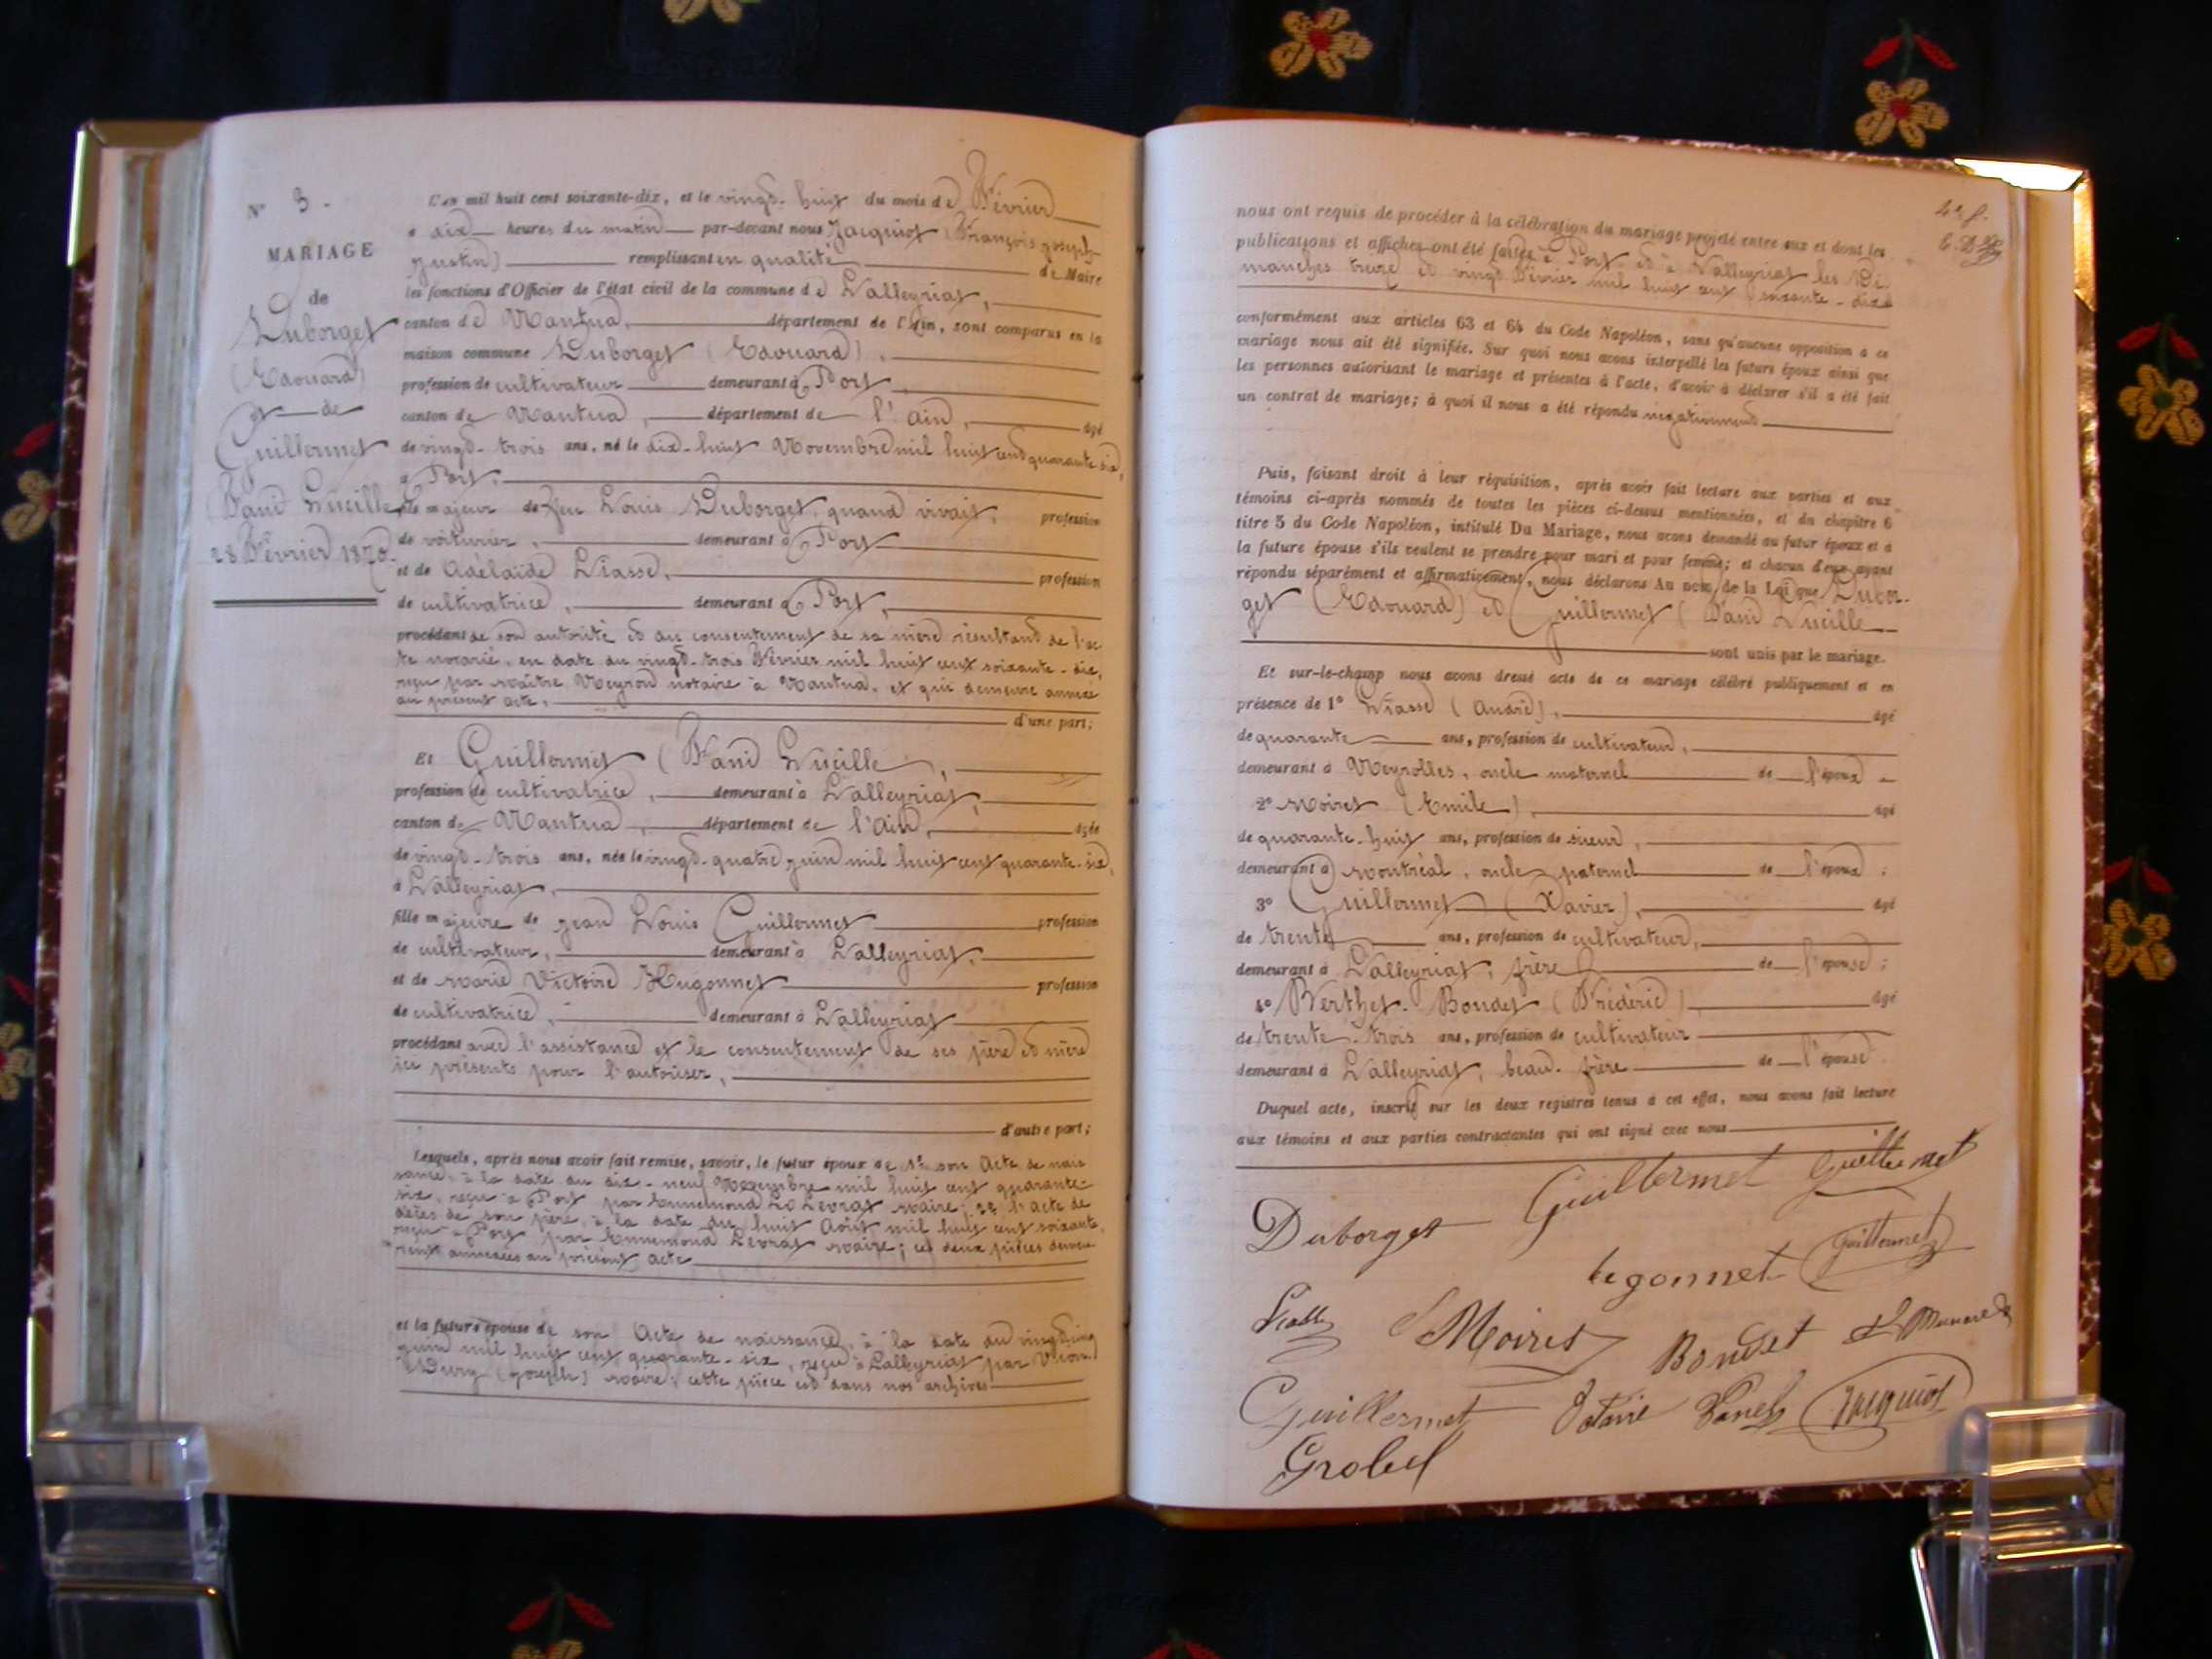 N° 3.
MARIAGE
de
Duborget
(Edouard)
et de
Guillermet
Fanie Lucille
28 Février 1870.
L'an mil huit cent soixante-dix, et le vingt-huit du mois de Février
à dix heures du matin par-devant nous Jacquiot (François Joseph
Justin) remplissant en qualité de Maire
les fonctions d'Officier de l'état civil de la commune de Lalleyriat,
canton de Nantua, département de l'Ain, sont comparus en la
maison commune Duborget (Edouard),
profession de cultivateur demeurant à Port,
canton de Nantua, département de l'Ain, âgé
de vingt-trois ans, né le dix-huit Novembre mil huit cent quarante six,
à Port,
fils majeur de feu Louis Duborget, quand vivait, profession
de voiturier, demeurant à Port
et de Adélaïde Liasse, profession
de cultivatrice, demeurant à Port,
procédant de son autorité et du consentement de sa mère résultant de l'ac
te notarié, en date du vingt-trois Février mil huit cent soixante-dix,
reçu par maître Meyron notaire à Nantua, et qui demeure annexé
au présent acte,
d'une part;
Et Guillermet (Fanie Lucille),
profession de cultivatrice, demeurant à Lalleyriat,
canton de Nantua, département de l'Ain, âgée
de vingt-trois ans, née le vingt-quatre juin mil huit cent quarante-six,
à Lalleyriat,
fille majeure de Jean Louis Guillermet profession
de cultivateur, demeurant à Lalleyriat,
et de Marie Victoire Hugonnet profession
de cultivatrice, demeurant à Lalleyriat
procédant avec l'assistance et le consentement de ses père et mère
ici présents pour l'autoriser,
d'autre part;
Lesquels, après nous avoir fait remise, savoir, le futur époux de 1° son acte de nais
sance, à la date du dix-neuf Novembre mil huit cent quarante-
six, reçu à Port par Ennemond Levrat maire; 2° l'acte de
décès de son père, à la date du huit Août mil huit cent soixante,
reçu à Port par Ennemond Levrat maire; ces deux pièces demeu
rent annexées au présent acte
et la future épouse de son Acte de naissance, à la date du vingt cinq
juin mil huit cent quarante-six, reçu à Lalleyriat par
(Joseph) maire; cette pièce est dans nos archives
nous ont requis de procéder à la célébration du mariage projeté entre eux et dont les
publications et affiches ont été faites à Port et à Lalleyriat les Di
manches treize et vingt Février mil huit cent soixante-dix
conformément aux articles 63 et 64 du Code Napoléon, sans qu'aucune opposition à ce
mariage nous ait été signifiée. Sur quoi nous avons interpellé les futurs époux ainsi que
les personnes autorisant le mariage et présentes à l'acte, d'avoir à déclarer s'il a été fait
un contrat de mariage; à quoi il nous a été répondu négativement
Puis, faisant droit à leur réquisition, après avoir fait lecture aux parties et aux
témoins ci-après nommés de toutes les pièces ci-dessus mentionnées, et du chapitre 6
titre 5 du Code Napoléon, intitulé Du Mariage, nous avons demandé au futur époux et à
la future épouse s'ils veulent se prendre pour mari et pour femme; et chacun d'eux ayant
répondu séparément et affirmativement, nous déclarons Au nom de la Loi que Dubor-
get (Edouard) et Guillermet (Fanie Lucille
sont unis par le mariage.
Et sur-le-champ nous avons dressé acte de ce mariage célébré publiquement et en
présence de 1° Liasse (André), âgé
de quarante ans, profession de cultivateur,
demeurant à Neyrolles, oncle maternel de l'époux
2° Moiret (Emile), âgé
de quarante-huit ans, profession de
demeurant à Montréal, oncle paternel de l'époux;
3° Guillermet (Xavier), âgé
de trente ans, profession de cultivateur,
demeurant à Lalleyriat, frère de l'épouse;
4° Berthet-Bondet (Frédéric) âgé
de trente-trois ans, profession de cultivateur
demeurant à Lalleyriat, beau-frère de l'épouse
Duquel acte, inscrit sur les deux registres tenus à cet effet, nous avons fait lecture
aux témoins et aux parties contractantes qui ont signé avec nous
Guillermet Guillermet
Duborget
Guillermet
Moiret
Bondet
Guillermet
Jacquiot
Grobel